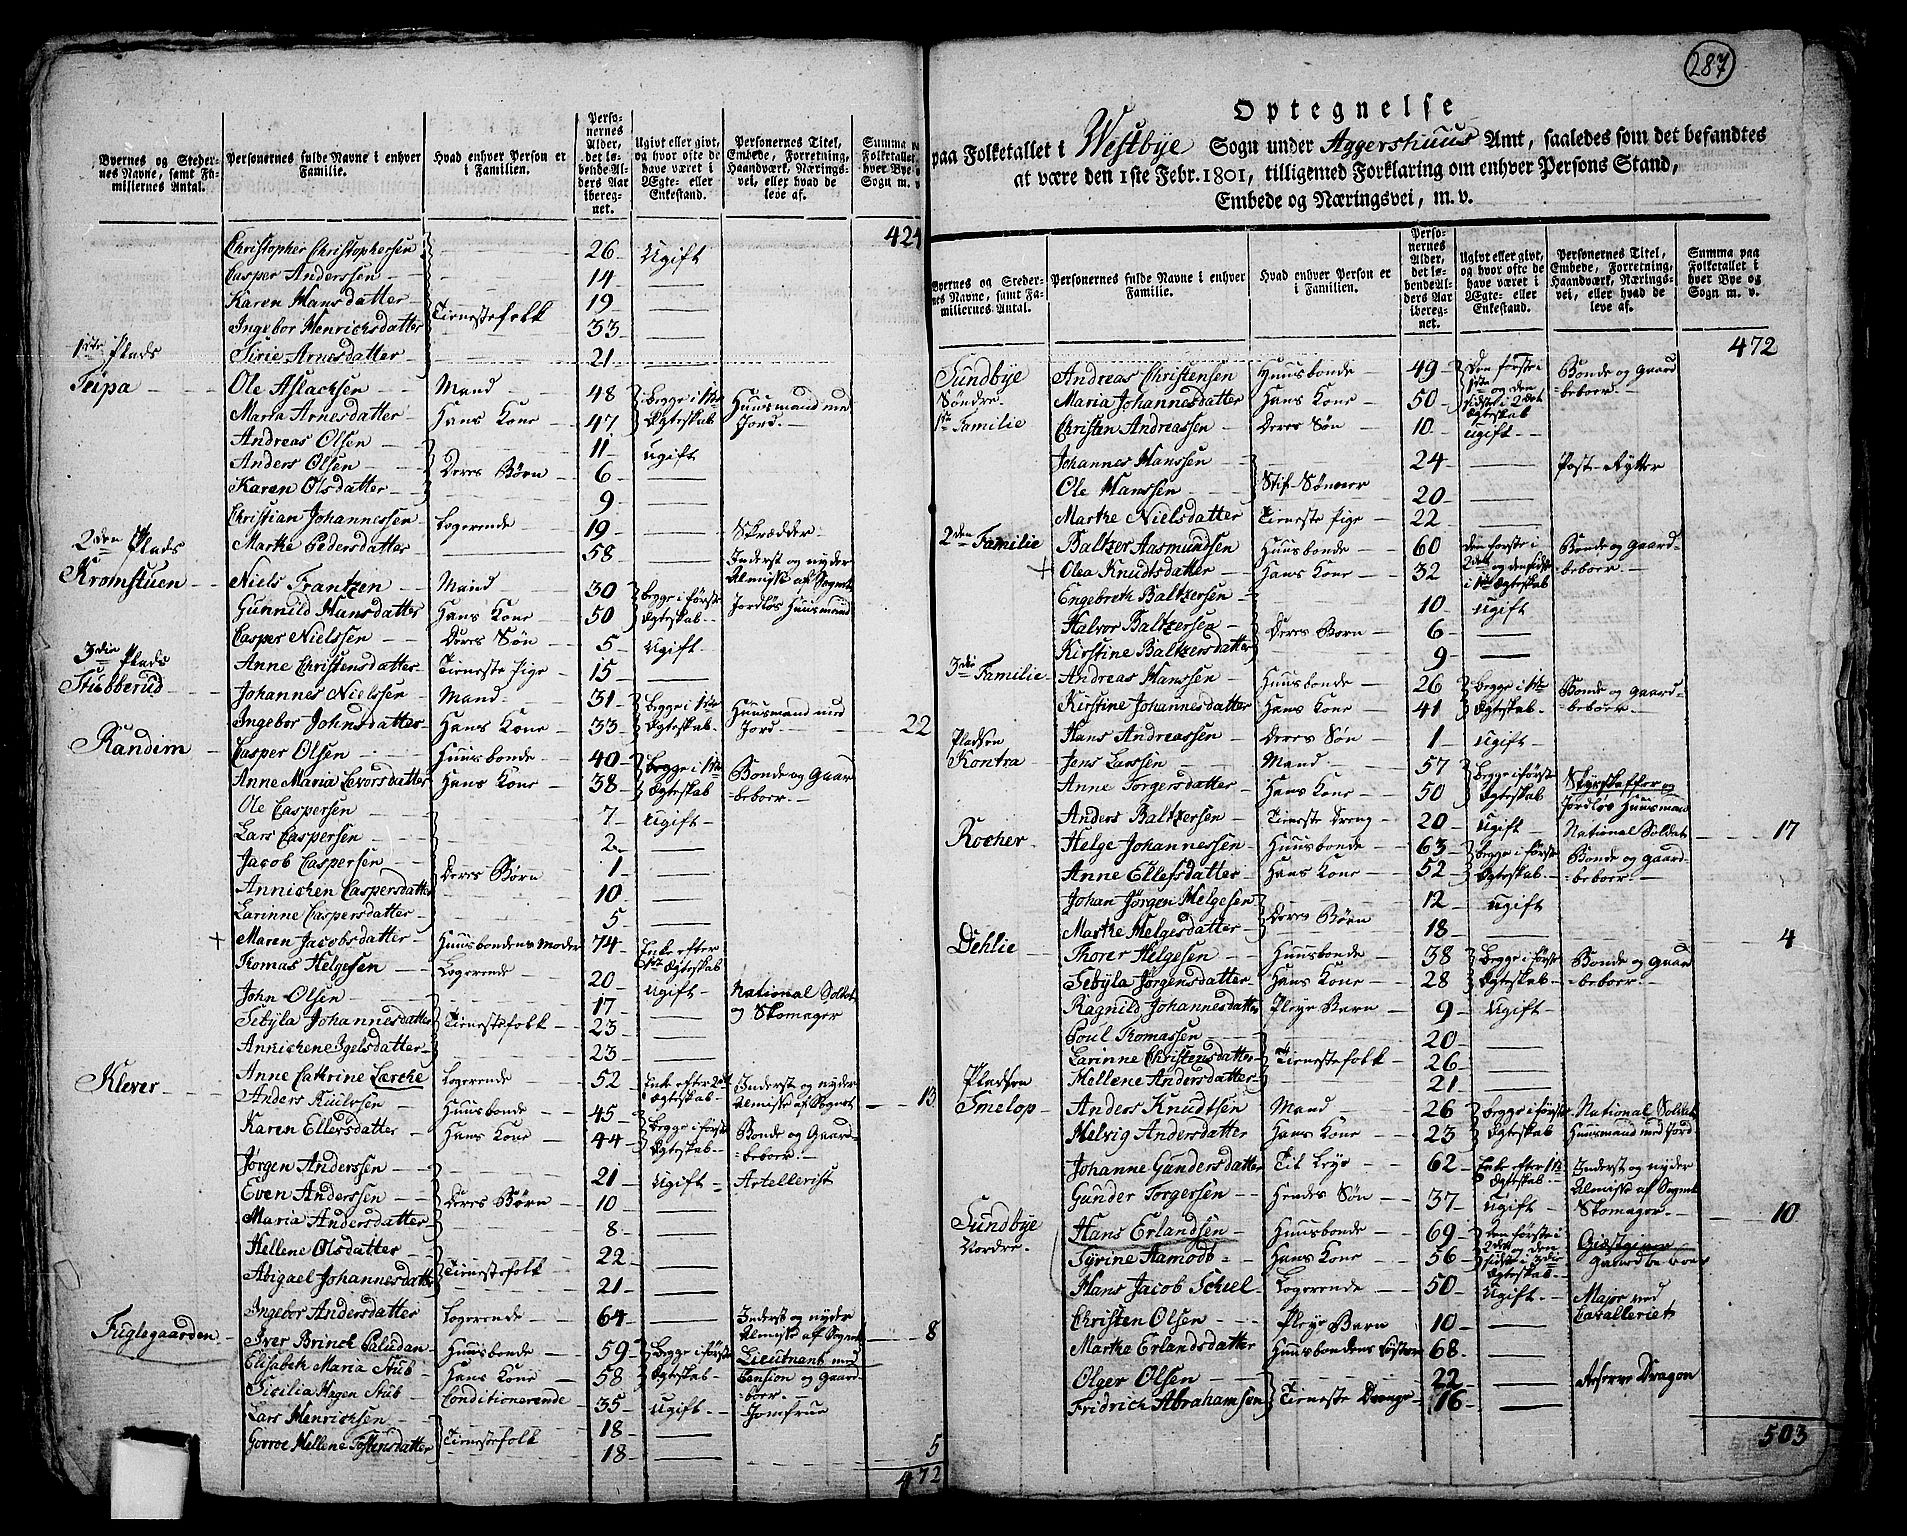 287
Byernes og Steder-
nes Navne, samt Fa-
miliernes Antal.
Personernes fulde Navne i enhver
Familie.
Hvad enhver Person er
i Familien.
Perso-
nernes
Alder,
det lø-
bende Al-
ders Aar
iberegnet.
Ugivt eller givt,
og hvor ofte de
have været i
Ægte- eller
Enkestand.
Personernes Titel,
Embede, Forretning,
Haandværk, Nærings-
vei, eller hvad de
leve af.
Summa
Folketallet
hver Bye
Sogn m. v.
424
Christopher Christophersen — 26 Ugift
Casper Anderssen — 14 —
Karen Hansdatter — 19 —
Ingebor Henrichsdatter Tienestefolk 33 —
1ste Plads Sirie Arnesdatter — 21 —
Teipa Ole Aslachsen Mand 48 begge i 1ste Huusmand med
Maria Arnesdatter Hans Kone 47 Ægteskab Jord.
Andreas Olsen — 11 ugift
Anders Olsen Deres Børn 6 —
Karen Olsdatter — 9 —
Christian Johannessen Logerende 19 — Skrædder
2den Plads Marthe Pedersdatter — 58 — Inderst og nyder
Almisse af Sognet
Kromstuen Niels Frantzen Mand 30 begge i første Jordløs Huusmand
Gunnild Hansdatter Hans Kone 50 Ægteskab
Casper Nielssen Deres Søn 5 Ugift
3die Plads Anne Christensdatter Tieneste Pige 15 —
Stubberud Johannes Nielssen Mand 31 begge i 1ste Huusmand med
Ingebor Johnsdatter Hans Kone 33 Ægteskab Jord 22
Randim Casper Olsen Huusbonde 40 begge i 1ste Bonde og Gaard-
Anne Maria Evorsdatter Hans Kone 38 Ægteskab beboer
Ole Caspersen — 7 ugift
Lars Caspersen — 2 —
Jacob Caspersen Deres Børn 1 —
Annichen Caspersdatter — 10 —
Larinne Caspersdatter — 5 —
+ Maren Jacobsdatter Huusbondens Moder 74 Enke efter
1ste Ægteskab
Tomas Helgesen Logerende 20 ugift National Soldat
og Skomager
John Olsen — 17 —
Sebÿla Johannesdatter Tienestefolk 23 —
Annichene Igelsdatter — 23 —
Anne Cathrine Lærche Logerende 52 Enke efter 2det Inderst og nyder
Ægteskab Almisse af Sognet 13
Klever Anders Kuulssen Huusbonde 45 begge i første Bonde og Gaard-
Karen Ellersdatter Hans Kone 44 Ægteskab beboer
Jørgen Anderssen — 21 Ugift Artellerist
Even Anderssen Deres Børn 10 —
Maria Andersdatter — 8 —
Hellene Olsdatter — 22 —
Abigael Johannesdatter Tienestefolk 21 —
Ingebor Andersdatter Logerende 64 — Inderst og nyder
Almisse af Sognet 8
Fuglegaarden Iver Brinck Paludan Huusbonde 59 begge i første Lieutnant med
Elisabeth Maria Stub Hans Kone 58 Ægteskab Pension og Gaard-
beboer.
Sicilia Hagen Stub Conditionerende 35 ugift Jomfrue
Lars Henrichsen — 18 —
Hellene Tostensdatter Tienestefolk 18 — 5
472
Optegnelse
paa Folketallet i Westbye Sogn under Aggershuus Amt, saaledes som det befandtes
at være den 1ste Febr. 1801, tilligemed Forklaring om enhver Persons Stand,
Embede og Næringsvei, m. v.
Byernes og Steder-
nes Navne, samt Fa-
miliernes Antal.
Personernes fulde Navne i enhver
Familie.
Hvad enhver Person er
i Familien.
Perso-
nernes
Alder,
det lø-
bende Al-
ders Aar
iberegnet.
Ugivt eller givt,
og hvor ofte de
have været i
Ægte- eller
Enkestand.
Personernes Titel,
Embede, Forretning,
Haandværk, Nærings-
vei, eller hvad de
leve af.
Summa paa
Folketallet i
hver Bye og
Sogn m. v.
472
Sundbye Andreas Christensen Huusbonde 49 Den første i Bonde og Gaard
Søndre Maria Johannesdatter Hans Kone 50 1ste og den beboer
sidste i 2det
Ægteskab
1ste Familie Christen Andreassen Deres Søn 10 ugift
Johannes Hanssen — 24 — Post-Rytter
Ole Hanssen Stif-Sønner 20 —
Marthe Nielsdatter Tieneste Pige 22 —
2den Familie Baltzer Aasmundsen Huusbonde 60 den første i Bonde og Gaard-
+ Olea Knudtsdatter Hans Kone 32 2det og den sidste beboer
i 1ste Ægteskab
Engebreth Baltzersen — 10 ugift
Halvor Baltzersen Deres Børn 6 —
Kirstine Baltzersdatter — 9 —
3die Familie Andreas Hanssen Huusbonde 26 begge i 1ste Bonde og Gaard-
Kirstine Johannesdatter Hans Kone 41 Ægteskab beboer
Hans Andreassen Deres Søn 1 ugift
Pladsen
Kontra Jens Larssen Mand 57 begge i første Skydskaffer og
Anne Torgersdatter Hans Kone 50 Ægteskab Jordløs Huusman
Anders Baltzersen Tieneste Dreng 20 ugift National Soldat 17
Rocher Helge Johannessen Huusbonde 63 begge i første Bonde og Gaard-
Anne Ellefsdatter Hans Kone 52 Ægteskab beboer
Johan Jørgen Helgesen — 12 ugift
Marthe Helgesdatter Deres Børn 18 — 4
Dehlie Thorer Helgesen Huusbonde 38 begge i første Bonde og Gaard
Sebÿla Jørgensdatter Hans Kone 28 Ægteskab beboer
Ragnild Johannesdatter Pleye Barn 9 Ugift
Poul Thomassen — 20 —
Larinne Christensdatter Tienestefolk 26 —
Mellene Andersdatter — 21 —
Pladsen
Smelop Anders Knudtsen Mand 26 begge i første National Soldat
Helvig Andersdatter Hans Kone 23 Ægteskab Huusmand med Jord
Johanne Gundersdatter Til Leye 62 Enke efter 1ste Inderst og nyder
Ægteskab Almisse af Sognet
Gunder Torgersen Hendes Søn 37 ugift Skomager 10
Sundbye Hans Erlandsen Huusbonde 69 den første i Giestgiver
Nordre Syrine Hamodt Hans Kone 56 2det og den Gaardbeboer
sidste i 3die
Ægteskab
Hans Jacob Schiel Logerende 50 Ugift Major ved
Cavalleriet
Christen Olsen Pleye Barn 10 —
Marthe Erlandsdatter Huusbondens Søster 68 —
Olger Olsen — 22 — Reserve Dragon
Fridrich Abrahamsen Tieneste Drenge 16 —
503